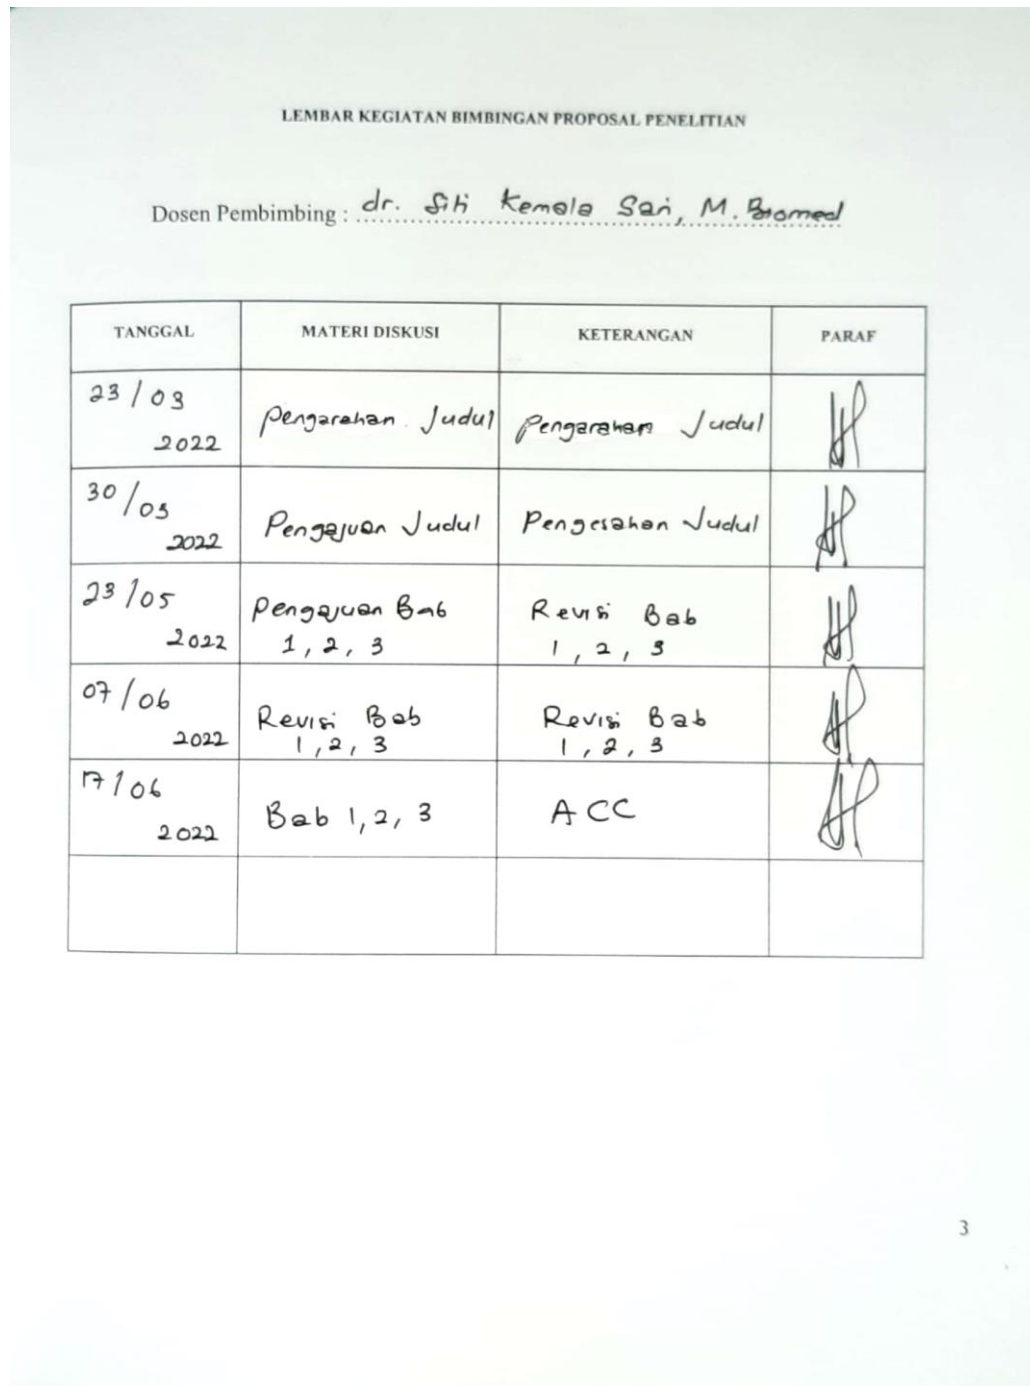 LEMBAR KEGIATAN BIMBINGAN PROPOSAL PENELITIAN
Dosen Pembimbing : dr. Siti Kemala Sari, M. Biomed
TANGGAL MATERI DISKUSI KETERANGAN PARAF
23/03
2022
Pengarahan Judul
Pengarahan Judul
30/03
2022
Pengajuan Judul
Pengesahan Judul
23/05
2022
Pengajuan Bab
1, 2, 3
Revisi Bab
1, 2, 3
07/06
2022
Revisi Bab
1, 2, 3
Revisi Bab
1, 2, 3
17/06
2022
Bab 1, 2, 3
ACC
3